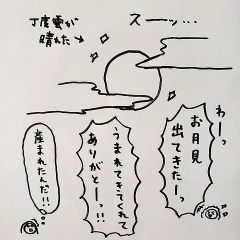 丁度雲が
晴れた
スーッ...
わーっ
お月見
出てきたーっ
うまれてきてくれて
ありがとーっ!!
産まれたんだ!!